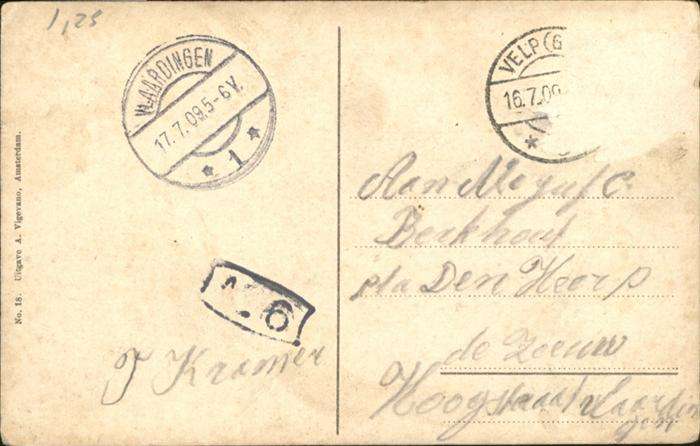 1,25
VLAARDINGEN
17.7.09.5-6V.
* 1 *
VELP (G
16.7.09
*
No. 18. Uitgave A. Vigevano, Amsterdam.
6
J Kramer
Aan Mejuf C
Berkhout
p/a Den Heer P
de Zeeuw
Hoogstraat Vlaardin
gen